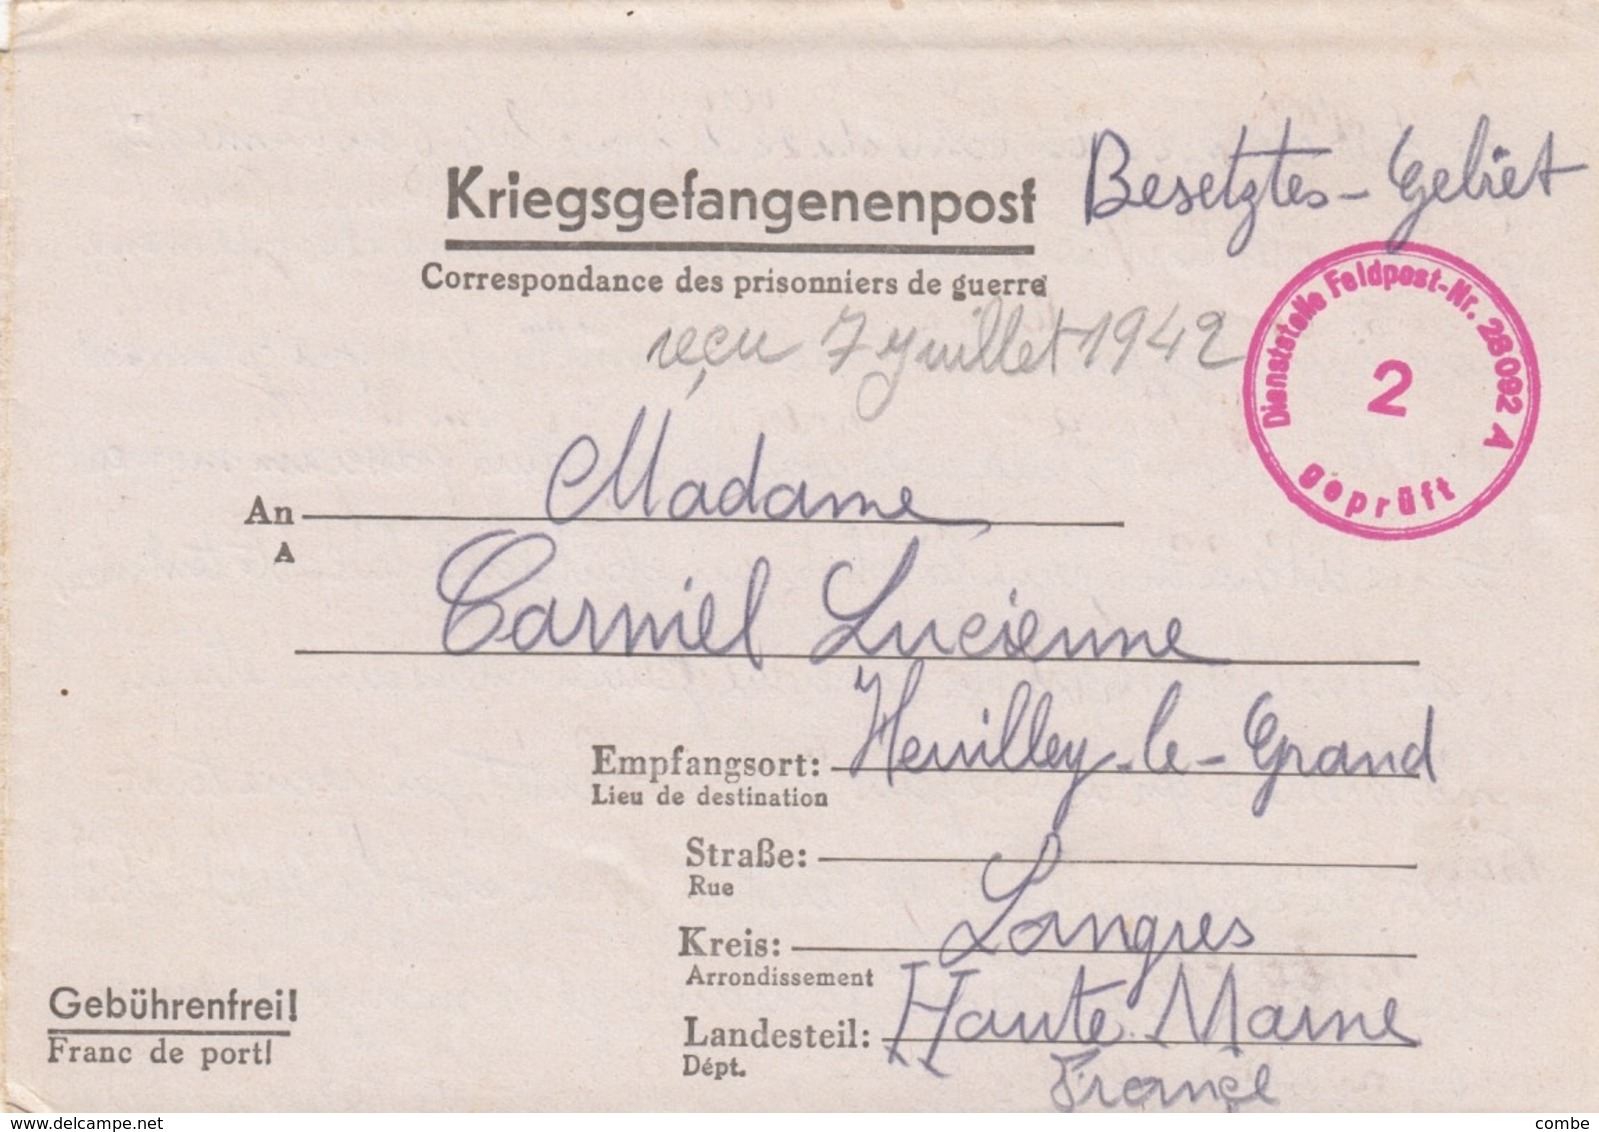 Kriegsgefangenenpost
Besetztes-Gebiet
Correspondance des prisonniers de guerre
reçu 7 juillet 1942
Dienststelle Feldpost-Nr. 28092 A
2
geprüft
An Madame
A
Carniel Lucienne
Empfangsort: Heuilley-le-Grand
Lieu de destination
Straße:
Rue
Kreis: Langres
Arrondissement
Gebührenfrei!
Franc de port!
Landesteil: Haute Marne
Dépt.
France
delcampe.net
combe